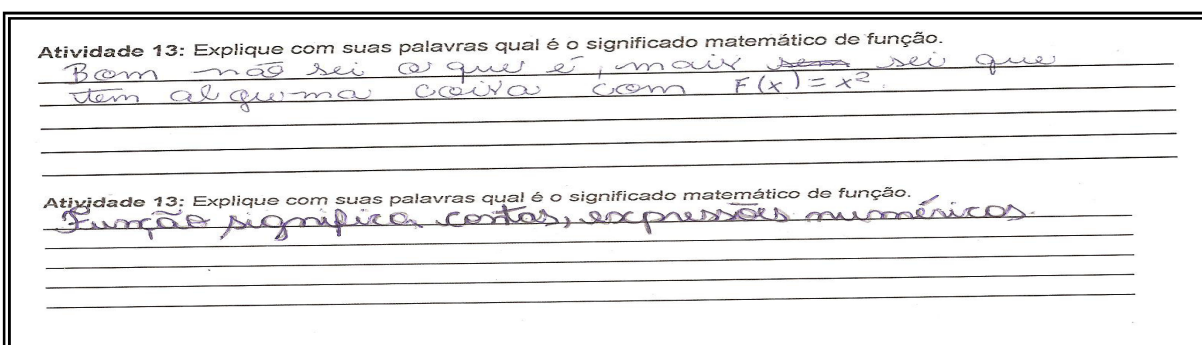 Atividade 13: Explique com suas palavras qual é o significado matemático de função.
Bom não sei o que é, mais sem sei que
tem alguma coisa com F(x) = x².
Atividade 13: Explique com suas palavras qual é o significado matemático de função.
Função significa contas, expressões numéricas.